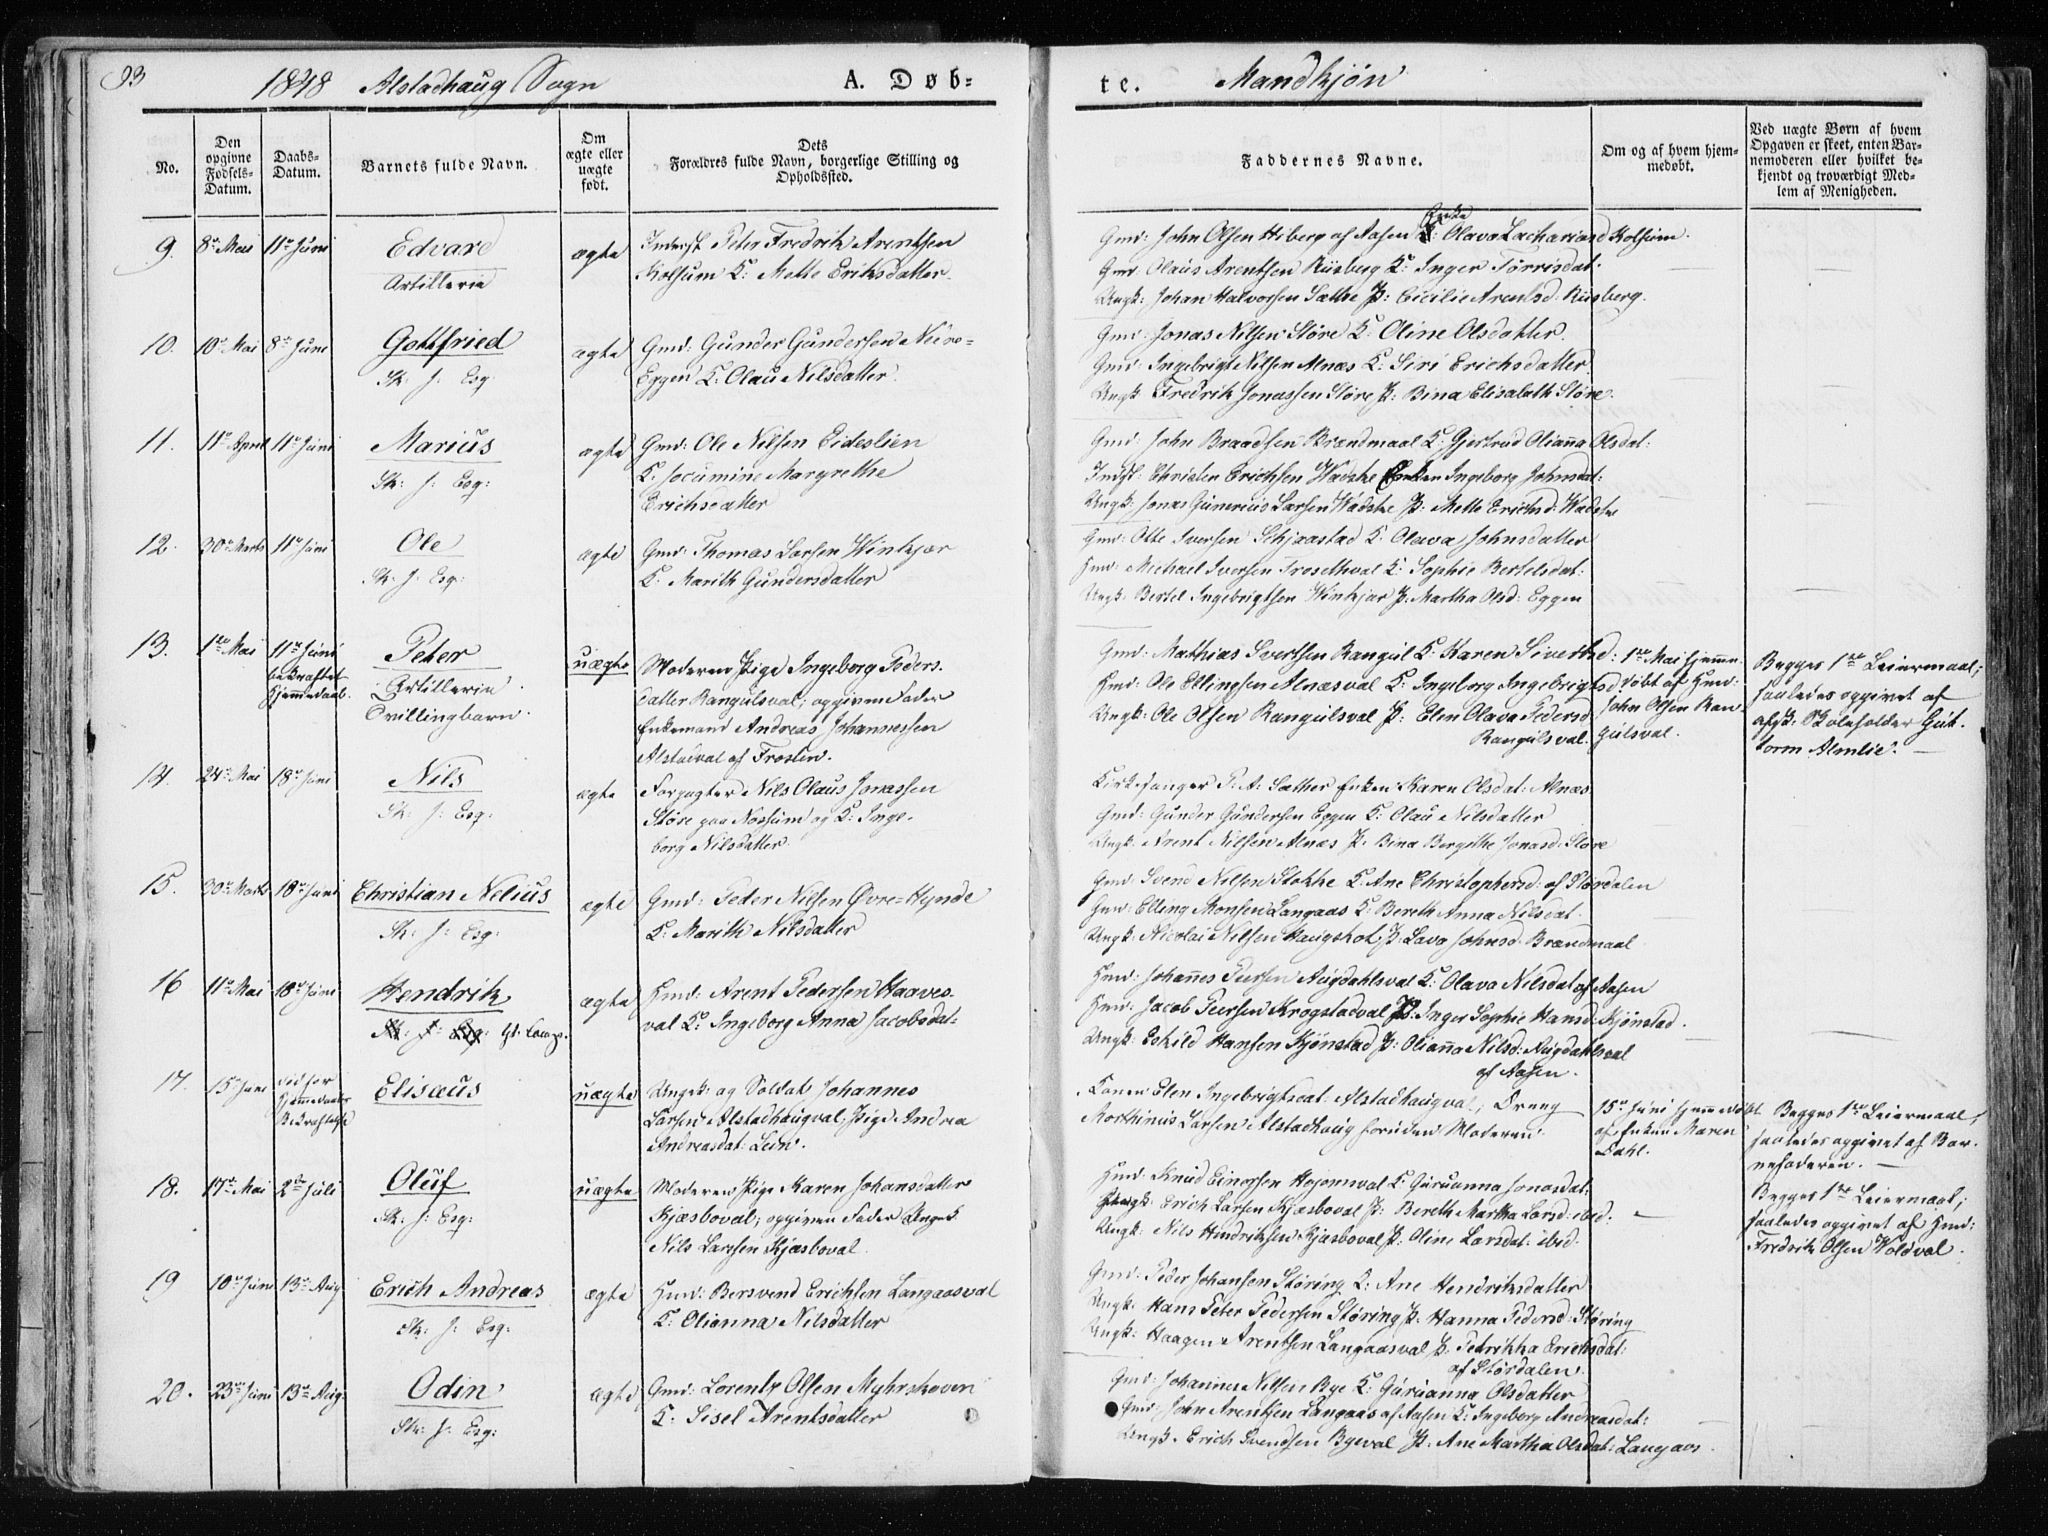 93
1848 Alstadhaug Sogn
A. Døb-
te.
Mandkjøn
No.
Den opgivne Fødsels-Datum.
Daabs-Datum.
Barnets fulde Navn.
Om ægte eller uægte født.
Dets Forældres fulde Navn, borgerlige Stilling og Opholdssted.
Faddernes Navne.
Om og af hvem hjem-medøbt.
Ved uægte Børn af hvem Opgaven er skeet, enten Bar-nemoderen eller hvilket be-kjendt og troværdigt Med-lem af Menigheden.
9. 8de Mai 11te Juni Edvard ægte
Artillerie
Inderst Peter Fredrik Arentsen
Kolsum K: Mette Eriksdatter
Gmd: John Olsen Hiberg af Aasen Enke Olava Zachariasd Kolsum.
Gmd: Olaus Arentsen Riisberg K: Inger Torrisdat:
Ungk: Johan Halvorsen Sæthe P: Cicilie Arentsd: Riisberg.
10. 10de Mai 8de Juni Gottfried ægte
Sk: J: Esq:
Gmd: Gunder Gundersen Neire-
Eggen K: Olau Nilsdatter
Gmd: Jonas Nilsen Støre K: Oline Olsdatter.
Gmd: Ingebrigt Nilsen Alnæs K: Siri Erichsdatter
Ungk: Fredrik Jonassen Støre P: Bina Elisabeth Støre.
11. 11te April 11te Juni Marius ægte
Sk: J: Esq:
Gmd: Ole Nilsen Eideslien
K: Jocumine Margrethe
Erichsdatter
Gmd: John Braadsen Brændmaal K: Gjertrud Olianna Olsdat:
Indst: Christen Erichsen Wadshe Enken Ingeborg Johnsdat:
Ungk: Jonas Gunerius Larsen Wadshe P: Mette Erichsd: Wadshe
12. 30te Marts 11te Juni Ole ægte
Sk: J: Esq:
Gmd: Thomas Larsen Winkjær
K: Marith Gundersdatter
Gmd: Otte Iversen Schjaastad K: Olava Johnsdatter
Hmd: Michael Iversen Trosethval K: Sophie Bertelsdat:
Ungk: Bertel Ingebrigtsen Winkjær P: Martha Olsd: Eggen
13. 1ste Mai 11te Juni Peter uægte
bekræftet
Hjemmedaab.
Artillerie
Tvillingbarn.
Moderen Pige Ingeborg Peders-
datter Rangulsval; opgiven Fader
Enkemand Andreas Johannessen
Alstadval af Frosten.
Gmd: Mathias Svertsen Rangul K: Karen Sivertsd:
Hmd: Ole Ellingsen Alnæsval K: Ingeborg Ingebrigtsd
Ungk: Ole Olsen Rangulsval P: Elen Olava Pedersd
Rangulsval.
1ste Mai hjemme-
døbt af Hmd:
John Olsen Ran-
gulsval.
Begges 1ste Leiermaal;
saaledes opgivet af
afgk: Skoleholder Gut-
torm Almlie.
14. 24de Mai 18de Juni Nils ægte
Sk: J: Esq:
Forpagter Nils Olaus Jonassen
Støre paa Nossum og K: Inge-
borg Nilsdatter
Kirkesanger P: A: Sæther Enken Karen Olsdat: Alnæs
Gmd: Gunder Gundersen Eggen K: Olau Nilsdatter
Ungk: Arent Nilsen Alnæs P: Bina Bergithe Jonasd: Støre
15. 30te Marts 18de Juni Christian Nelius ægte
Sk: J: Esq:
Gmd: Peder Nilsen Øvre-Hynde
K: Marith Nilsdatter
Gmd: Svend Nilsen Stokke K: Ane Christophersd: af Størdalen
Gmd: Elling Monsen Langaas K: Bereth Anna Nilsdat.
Ungk: Nicolai Nilsen Haugskot P: Lava Johnsd: Brændmaal
16 11te Mai 18de Juni Hendrik ægte
Sk: J: Esq:
Hmd: Arent Pedersen Haaves-
val K: Ingeborg Anna Jacobsdat:
Hmd: Johannes Peersen Augdahlsval K: Olava Nilsdat af Aasen
Hmd: Jacob Peersen Krogstadval P: Inger Sophie Hansd: Kjønstad.
Ungk: Eskild Hansen Kjønstad P: Olianna Nilsd: Augdahlsval
af Aasen.
17. 15de Juni død før
Hjemmedaabs
Bekræftelse
Elisæus uægte
Ungk: og Soldat Johannes
Larsen Alstadhaugval; Pige Andrea
Andreasdat: Lein.
Konen Elen Ingebrigtsdat: Alstadhaugval; Dreng
Morthinus Larsen Alstadhaug foruden Moderen.
15de Juni hjemmedøbt
af Enken Maren
Dahl.
Begges 1ste Leiermaal,
saaledes opgivet af Bar-
nefaderen.
18. 17de Mai 2den Juli Oluf uægte
Sk: J: Esq:
Moderen Pige Karen Johansdatter
Kjæsboval; opgiven Fader Ungk
Nils Larsen Kjæsboval.
Hmd: Knud Einersen Hojemval K: Guruanna Jonasdat:
Ungk: Erich Larsen Kjæsboval P: Bereth Martha Larsd: ibid.
Ungk: Nils Hindriksen Kjæsboval P: Oline Larsdat: ibid.
Begges 1ste Leiermaal;
saaledes opgivet af Hmd:
Fredrik Olsen Woldval.
19 10de Juni 13de Aug Erich Andreas ægte
Sk: J: Esq:
Hmd: Bersvend Erichsen Langaasval
K: Olianna Nilsdatter
Gmd: Peder Johansen Støring K: Ane Hendriksdatter
Ungk: Hans Peter Pedersen Støring P: Hanna Pedersd: Støring
Ungk: Haagen Arentsen Langaasval P: Petrikka Erichsdat:
af Størdalen.
20. 23de Juni 13de Aug: Odin ægte
Sk: J: Esq:
Gmd: Lorents Olsen Myhrskoven
K: Sisel Arentsdatter
Gmd: Johannes Nilsen Bye K: Guruanna Olsdatter
Gmd: John Arentsen Langaas af Aasen K: Ingeborg Andreasdat:
Ungk: Erich Svendsen Byeval P: Ane Martha Olsdat: Langaas.